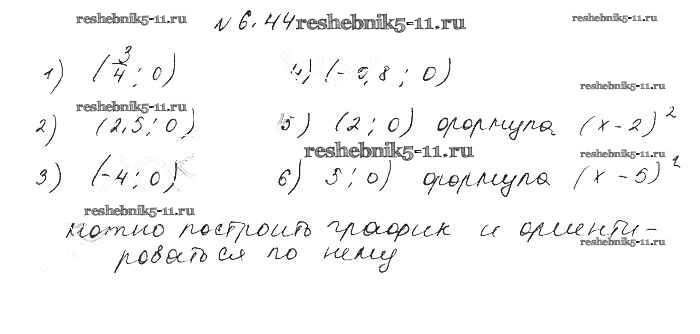 № 6.44 reshebnik5-11.ru reshebnik5-11.ru
reshebnik5-11.ru
1) (3/4; 0) 4) (-0,8; 0)
reshebnik5-11.ru reshebnik5-11.ru
2) (2,5; 0) 5) (2; 0) формула (x-2)²
reshebnik5-11.ru reshebnik5-11.ru
3) (-4; 0) 6) 5; 0) формула (x-5)²
reshebnik5-11.ru
можно построить график и ориенти-
reshebnik5-11.ru
роваться по нему